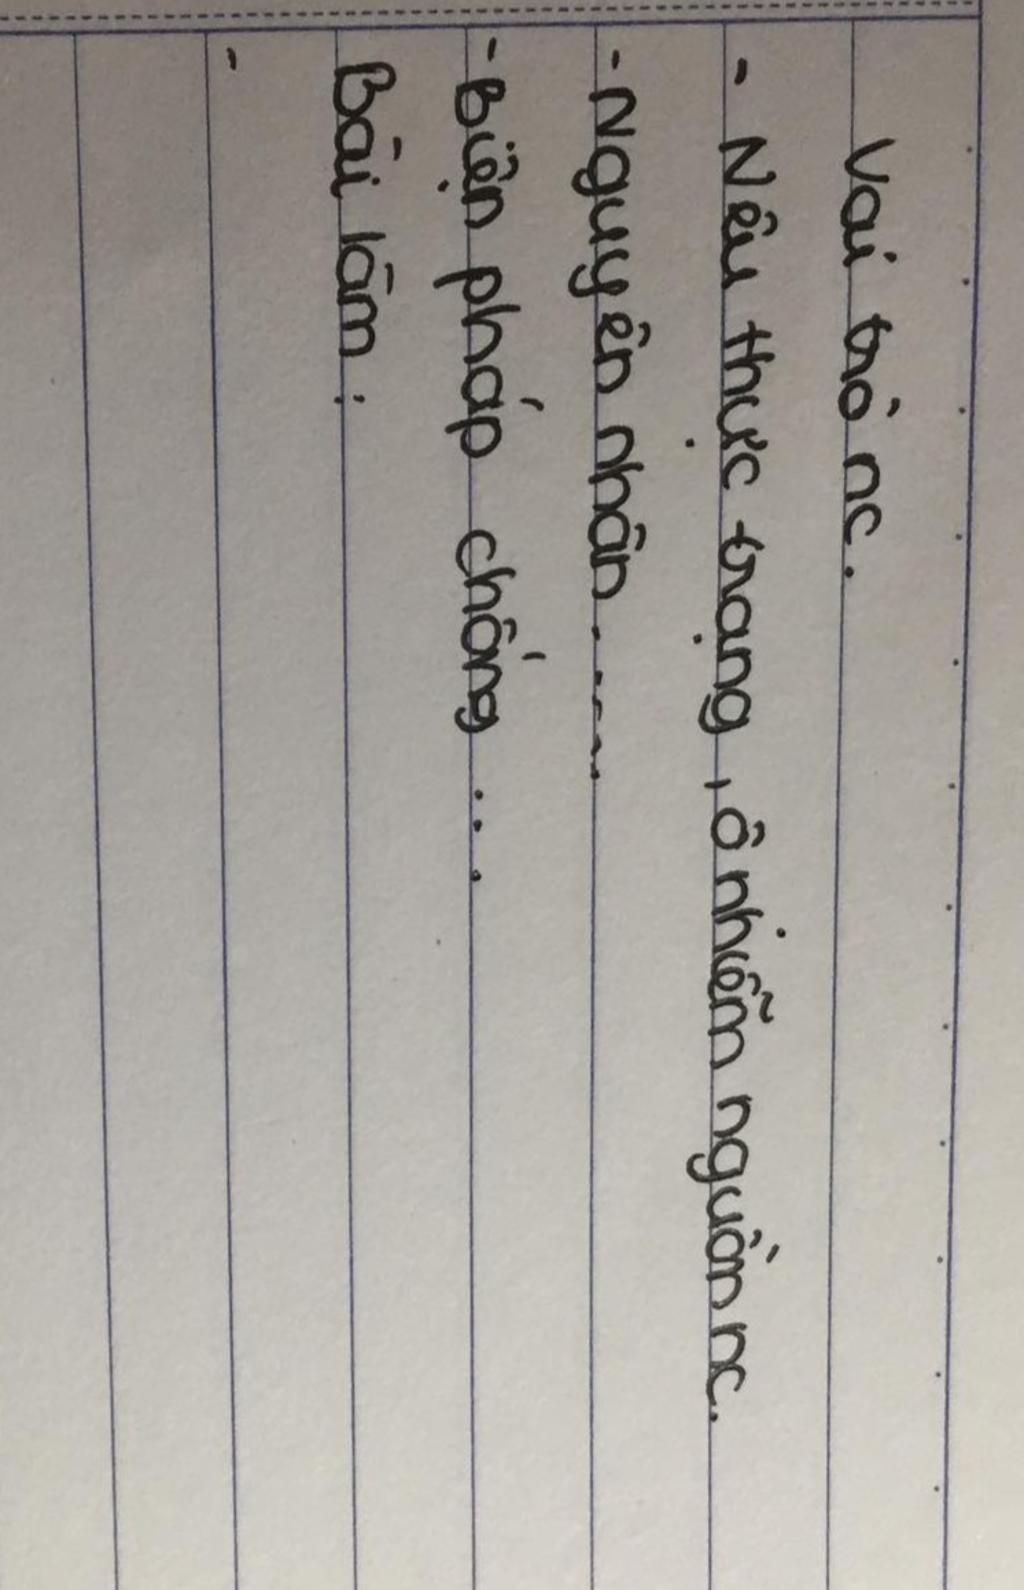 Vai trò nc.
- Nêu thực trạng, ô nhiễm nguồn nc.
- Nguyên nhân.....
- Biện pháp chống...
Bài làm:
-